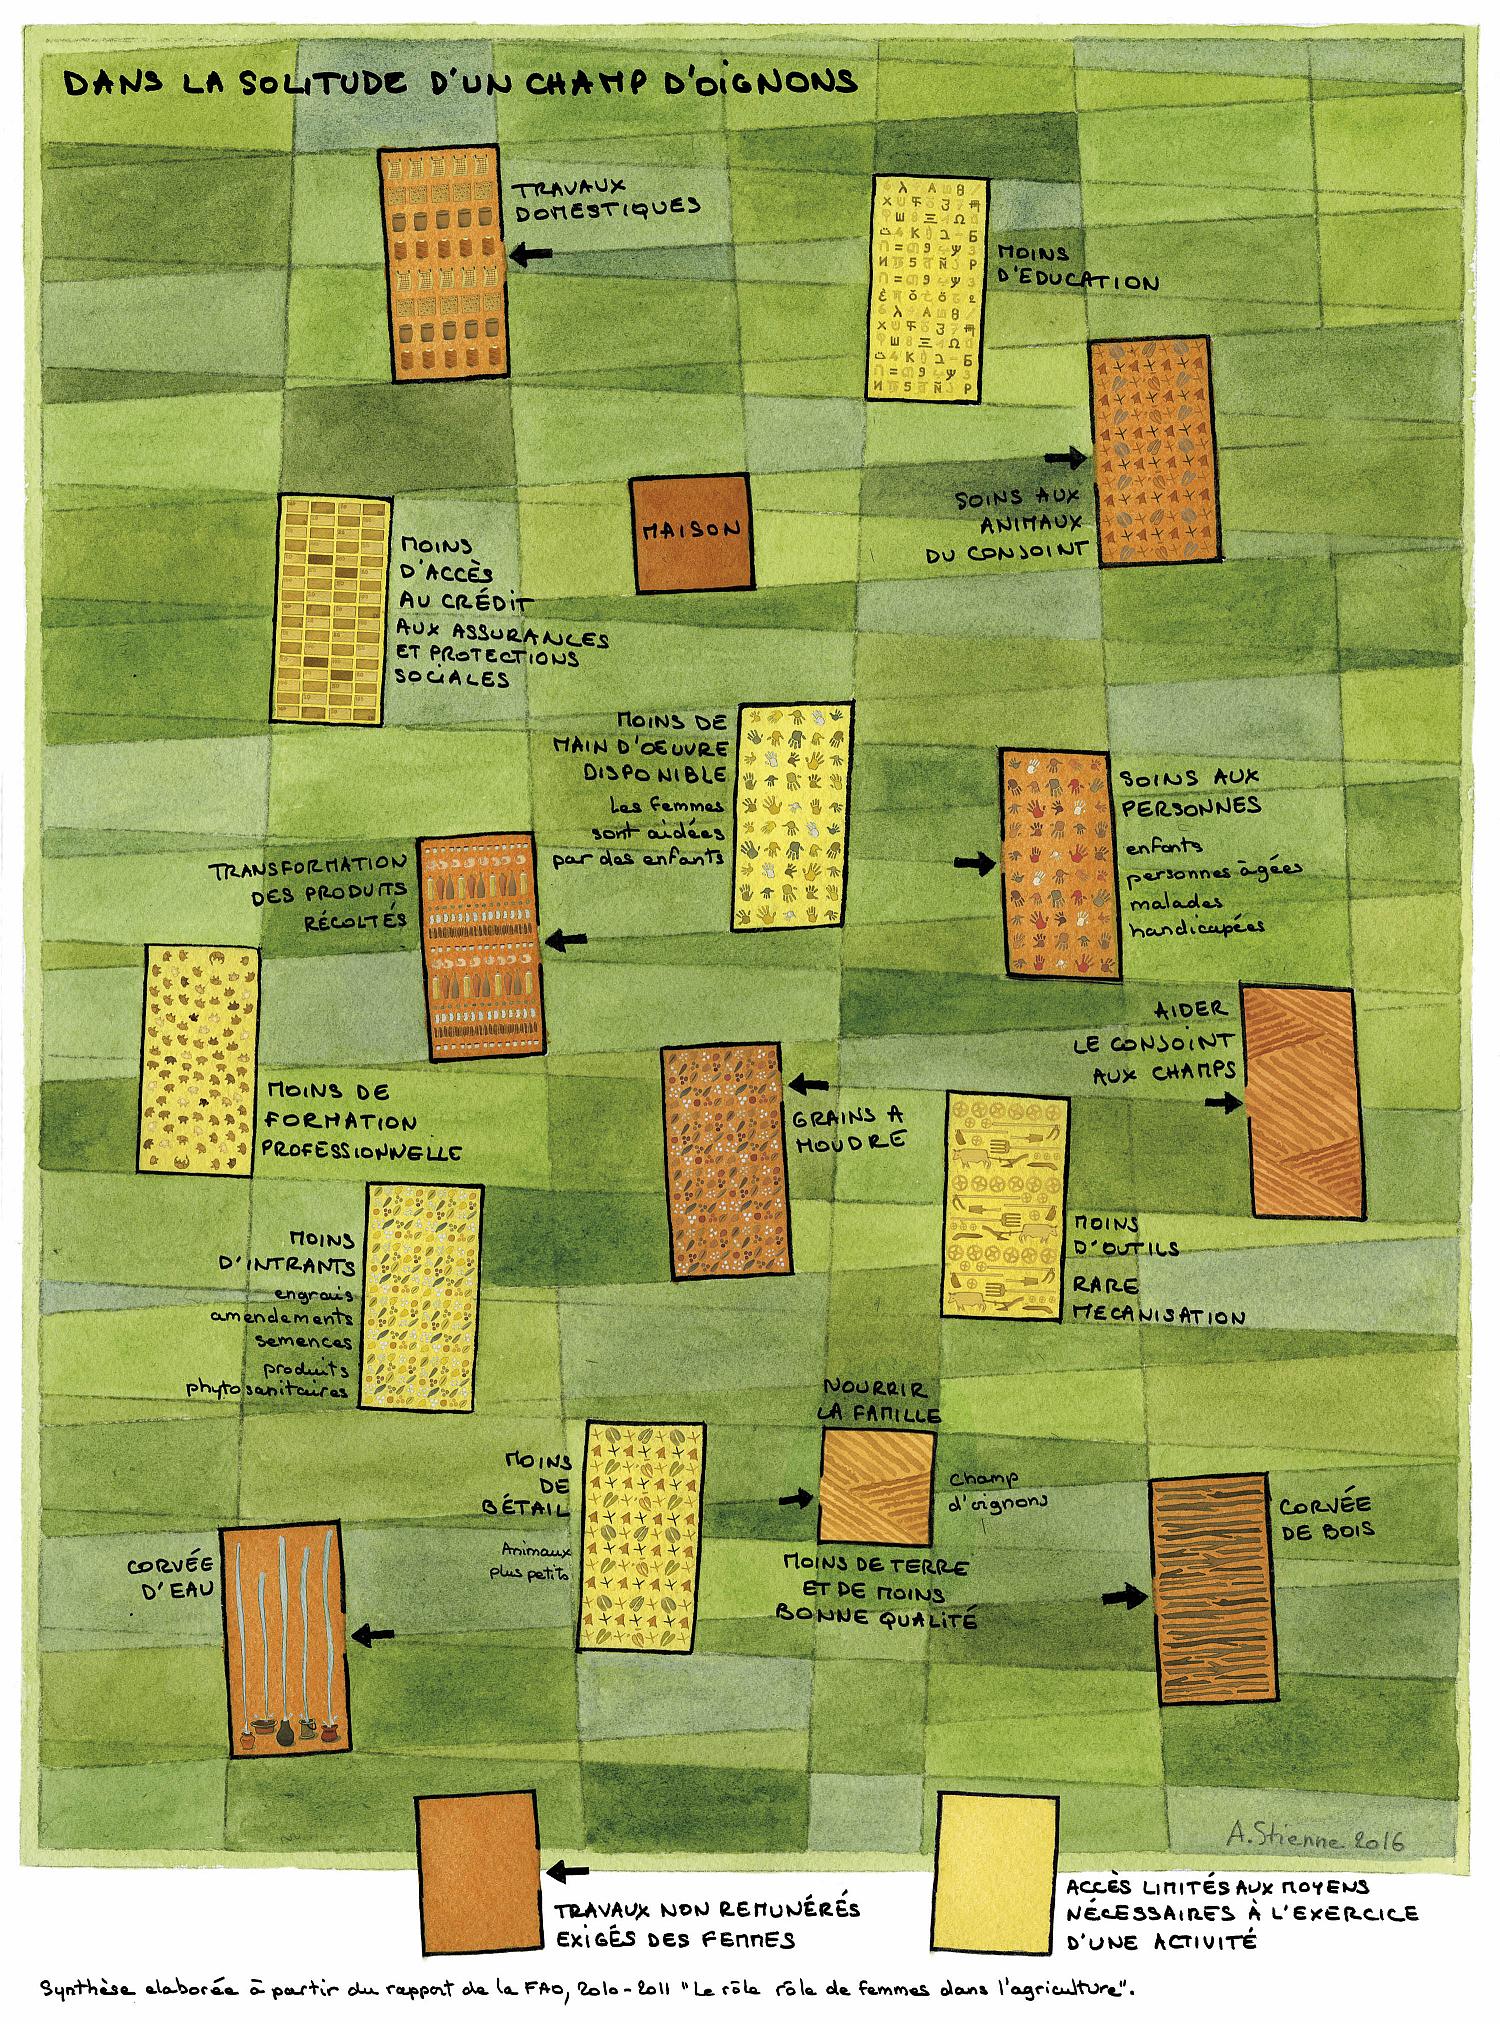 DANS LA SOLITUDE D'UN CHAMP D'OIGNONS
TRAVAUX
DOMESTIQUES
MOINS
D'EDUCATION
SOINS AUX
ANIMAUX
DU CONJOINT
MAISON
MOINS
D'ACCÈS
AU CRÉDIT
AUX ASSURANCES
ET PROTECTIONS
SOCIALES
MOINS DE
MAIN D'OEUVRE
DISPONIBLE
Les femmes
sont aidées
par des enfants
SOINS AUX
PERSONNES
enfants
personnes âgées
malades
handicapées
TRANSFORMATION
DES PRODUITS
RÉCOLTÉS
MOINS DE
FORMATION
PROFESSIONNELLE
AIDER
LE CONJOINT
AUX CHAMPS
GRAINS A
MOUDRE
MOINS
D'OUTILS
RARE
MECANISATION
MOINS
D'INTRANTS
engrais
amendements
semences
produits
phytosanitaires
NOURRIR
LA FAMILLE
Champ
d'oignons
MOINS DE TERRE
ET DE MOINS
BONNE QUALITÉ
MOINS
DE
BÉTAIL
Animaux
plus petits
CORVÉE
DE BOIS
CORVÉE
D'EAU
A. Stienne 2016
TRAVAUX NON REMUNÉRÉS
EXIGÉS DES FEMMES
ACCÈS LIMITÉS AUX MOYENS
NÉCESSAIRES À L'EXERCICE
D'UNE ACTIVITÉ
Synthèse elaborée à partir du rapport de la FAO, 2010-2011 "Le rôle rôle de femmes dans l'agriculture".